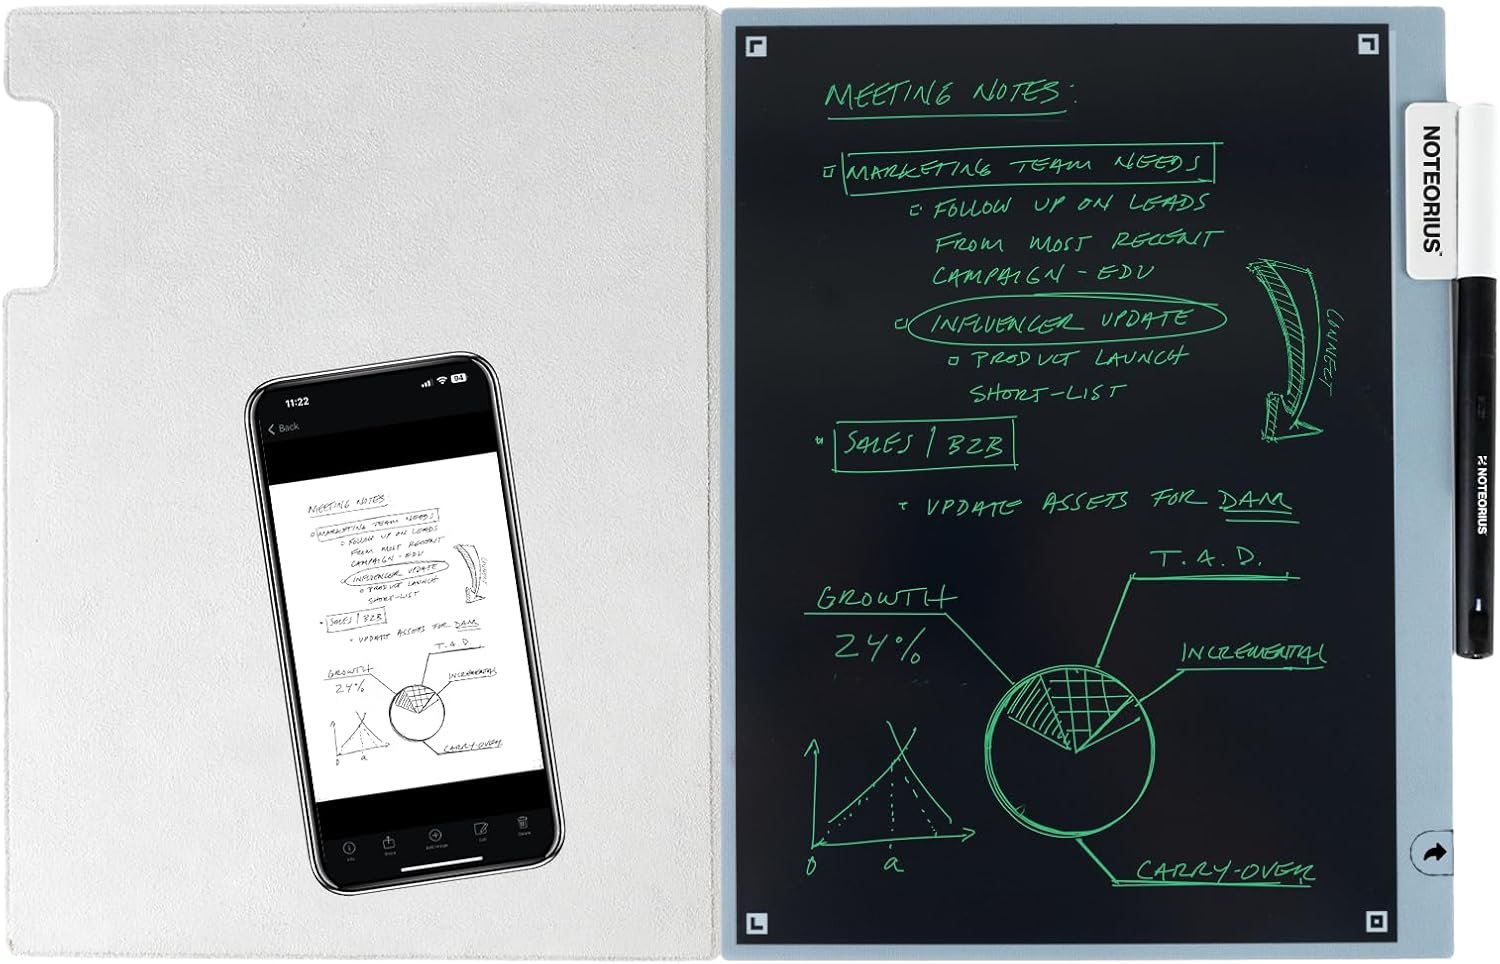 11:22
94
Back
MEETING NOTES:
MARKETING TEAM NEEDS
FOLLOW UP ON LEADS
FROM MOST RECENT
CAMPAIGN - EDU
INFLUENCER UPDATE
PRODUCT LAUNCH
SHORT-LIST
CONNECT
SALES | B2B
UPDATE ASSETS FOR DAM
T.A.D.
GROWTH
24%
INCREMENTAL
CARRY-OVER
0 a
Info Share Add Image Edit Delete
MEETING NOTES:
MARKETING TEAM NEEDS
FOLLOW UP ON LEADS
FROM MOST RECENT
CAMPAIGN - EDU
INFLUENCER UPDATE
PRODUCT LAUNCH
SHORT-LIST
CONNECT
SALES | B2B
UPDATE ASSETS FOR DAM
T.A.D.
GROWTH
24%
INCREMENTAL
0 a
CARRY-OVER
NOTEORIUS™
NOTEORIUS